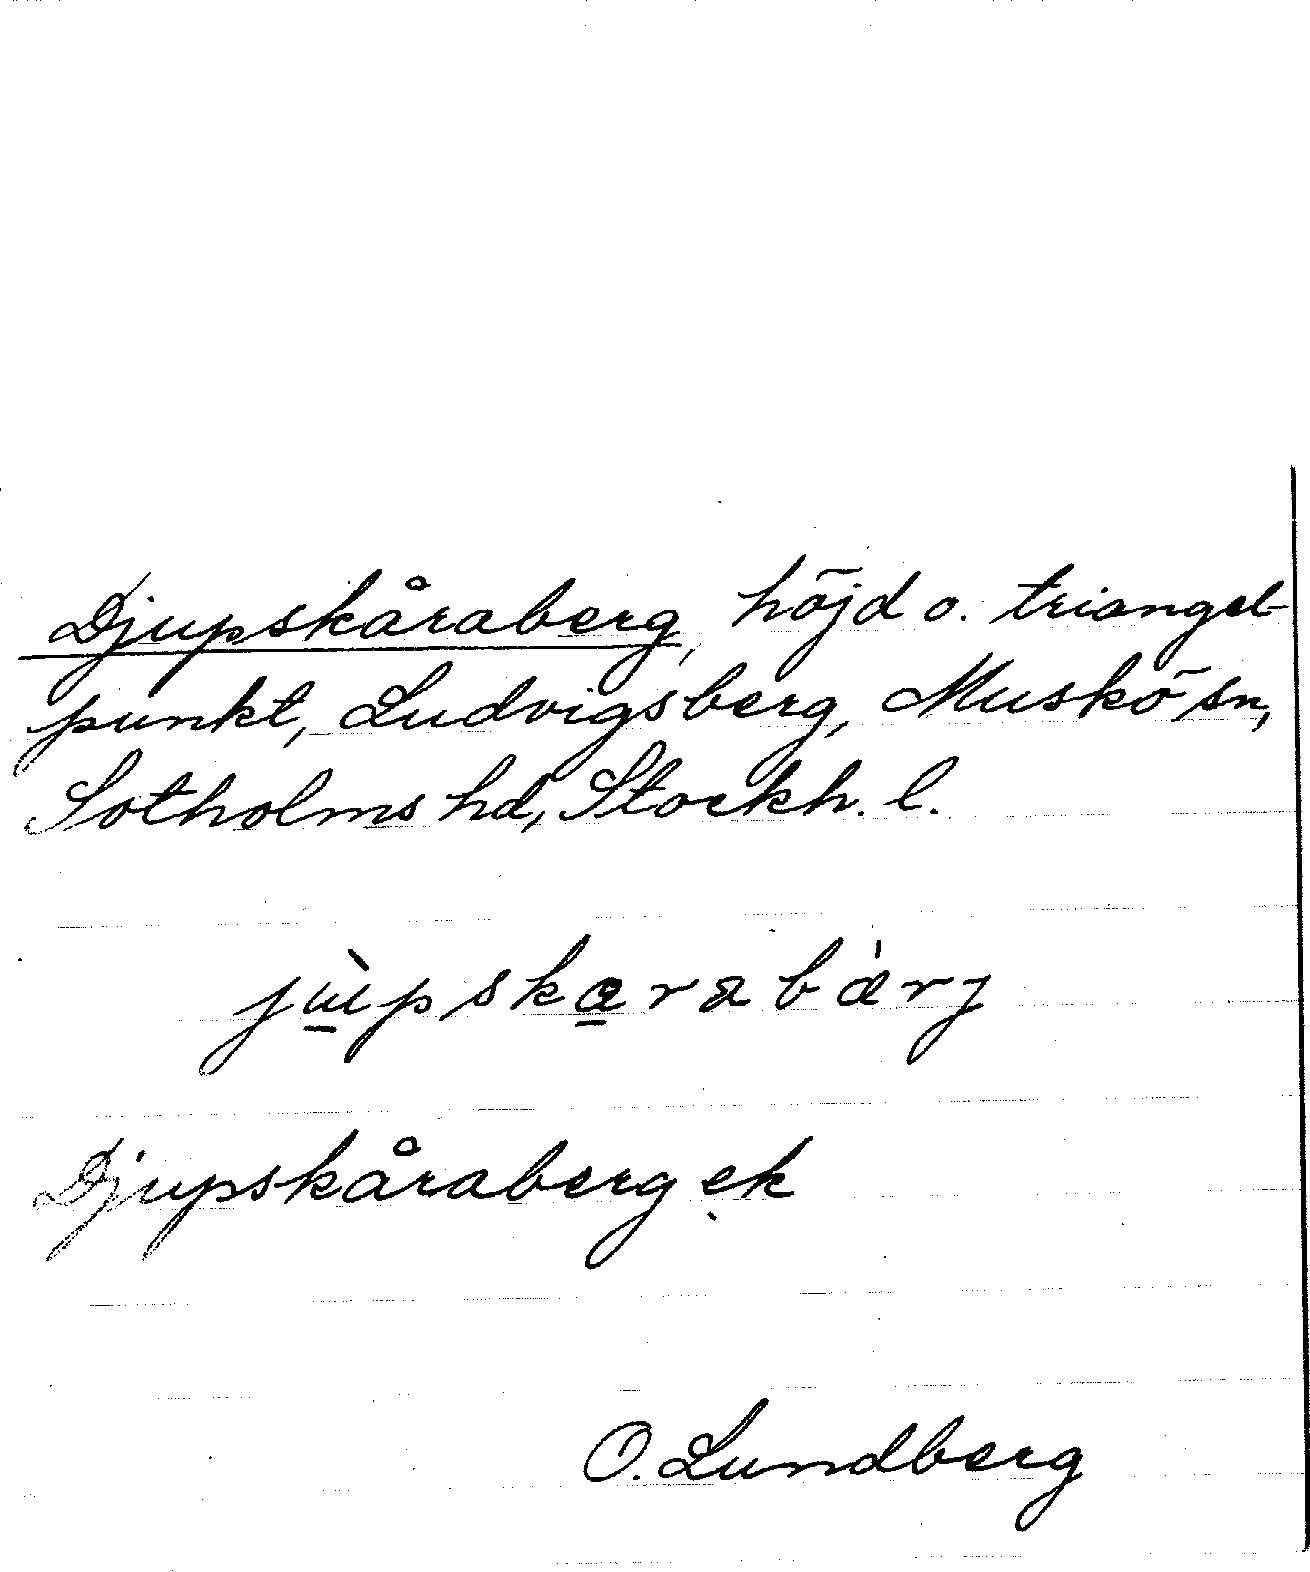 Djupskåraberg, höjd o. triangel-
punkt, Ludvigsberg, Muskö sn,
Sotholms hd, Stockh. l.
Djupskåraberg ek
O. Lundberg